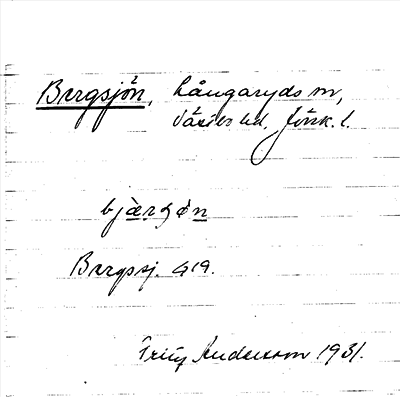 Bergsjön, Långaryds sn,
Västbo hd, Jönk. l.
bjæ̀rʂø̀n
Bergsj. GEA.
Fritz Anderson 1931.